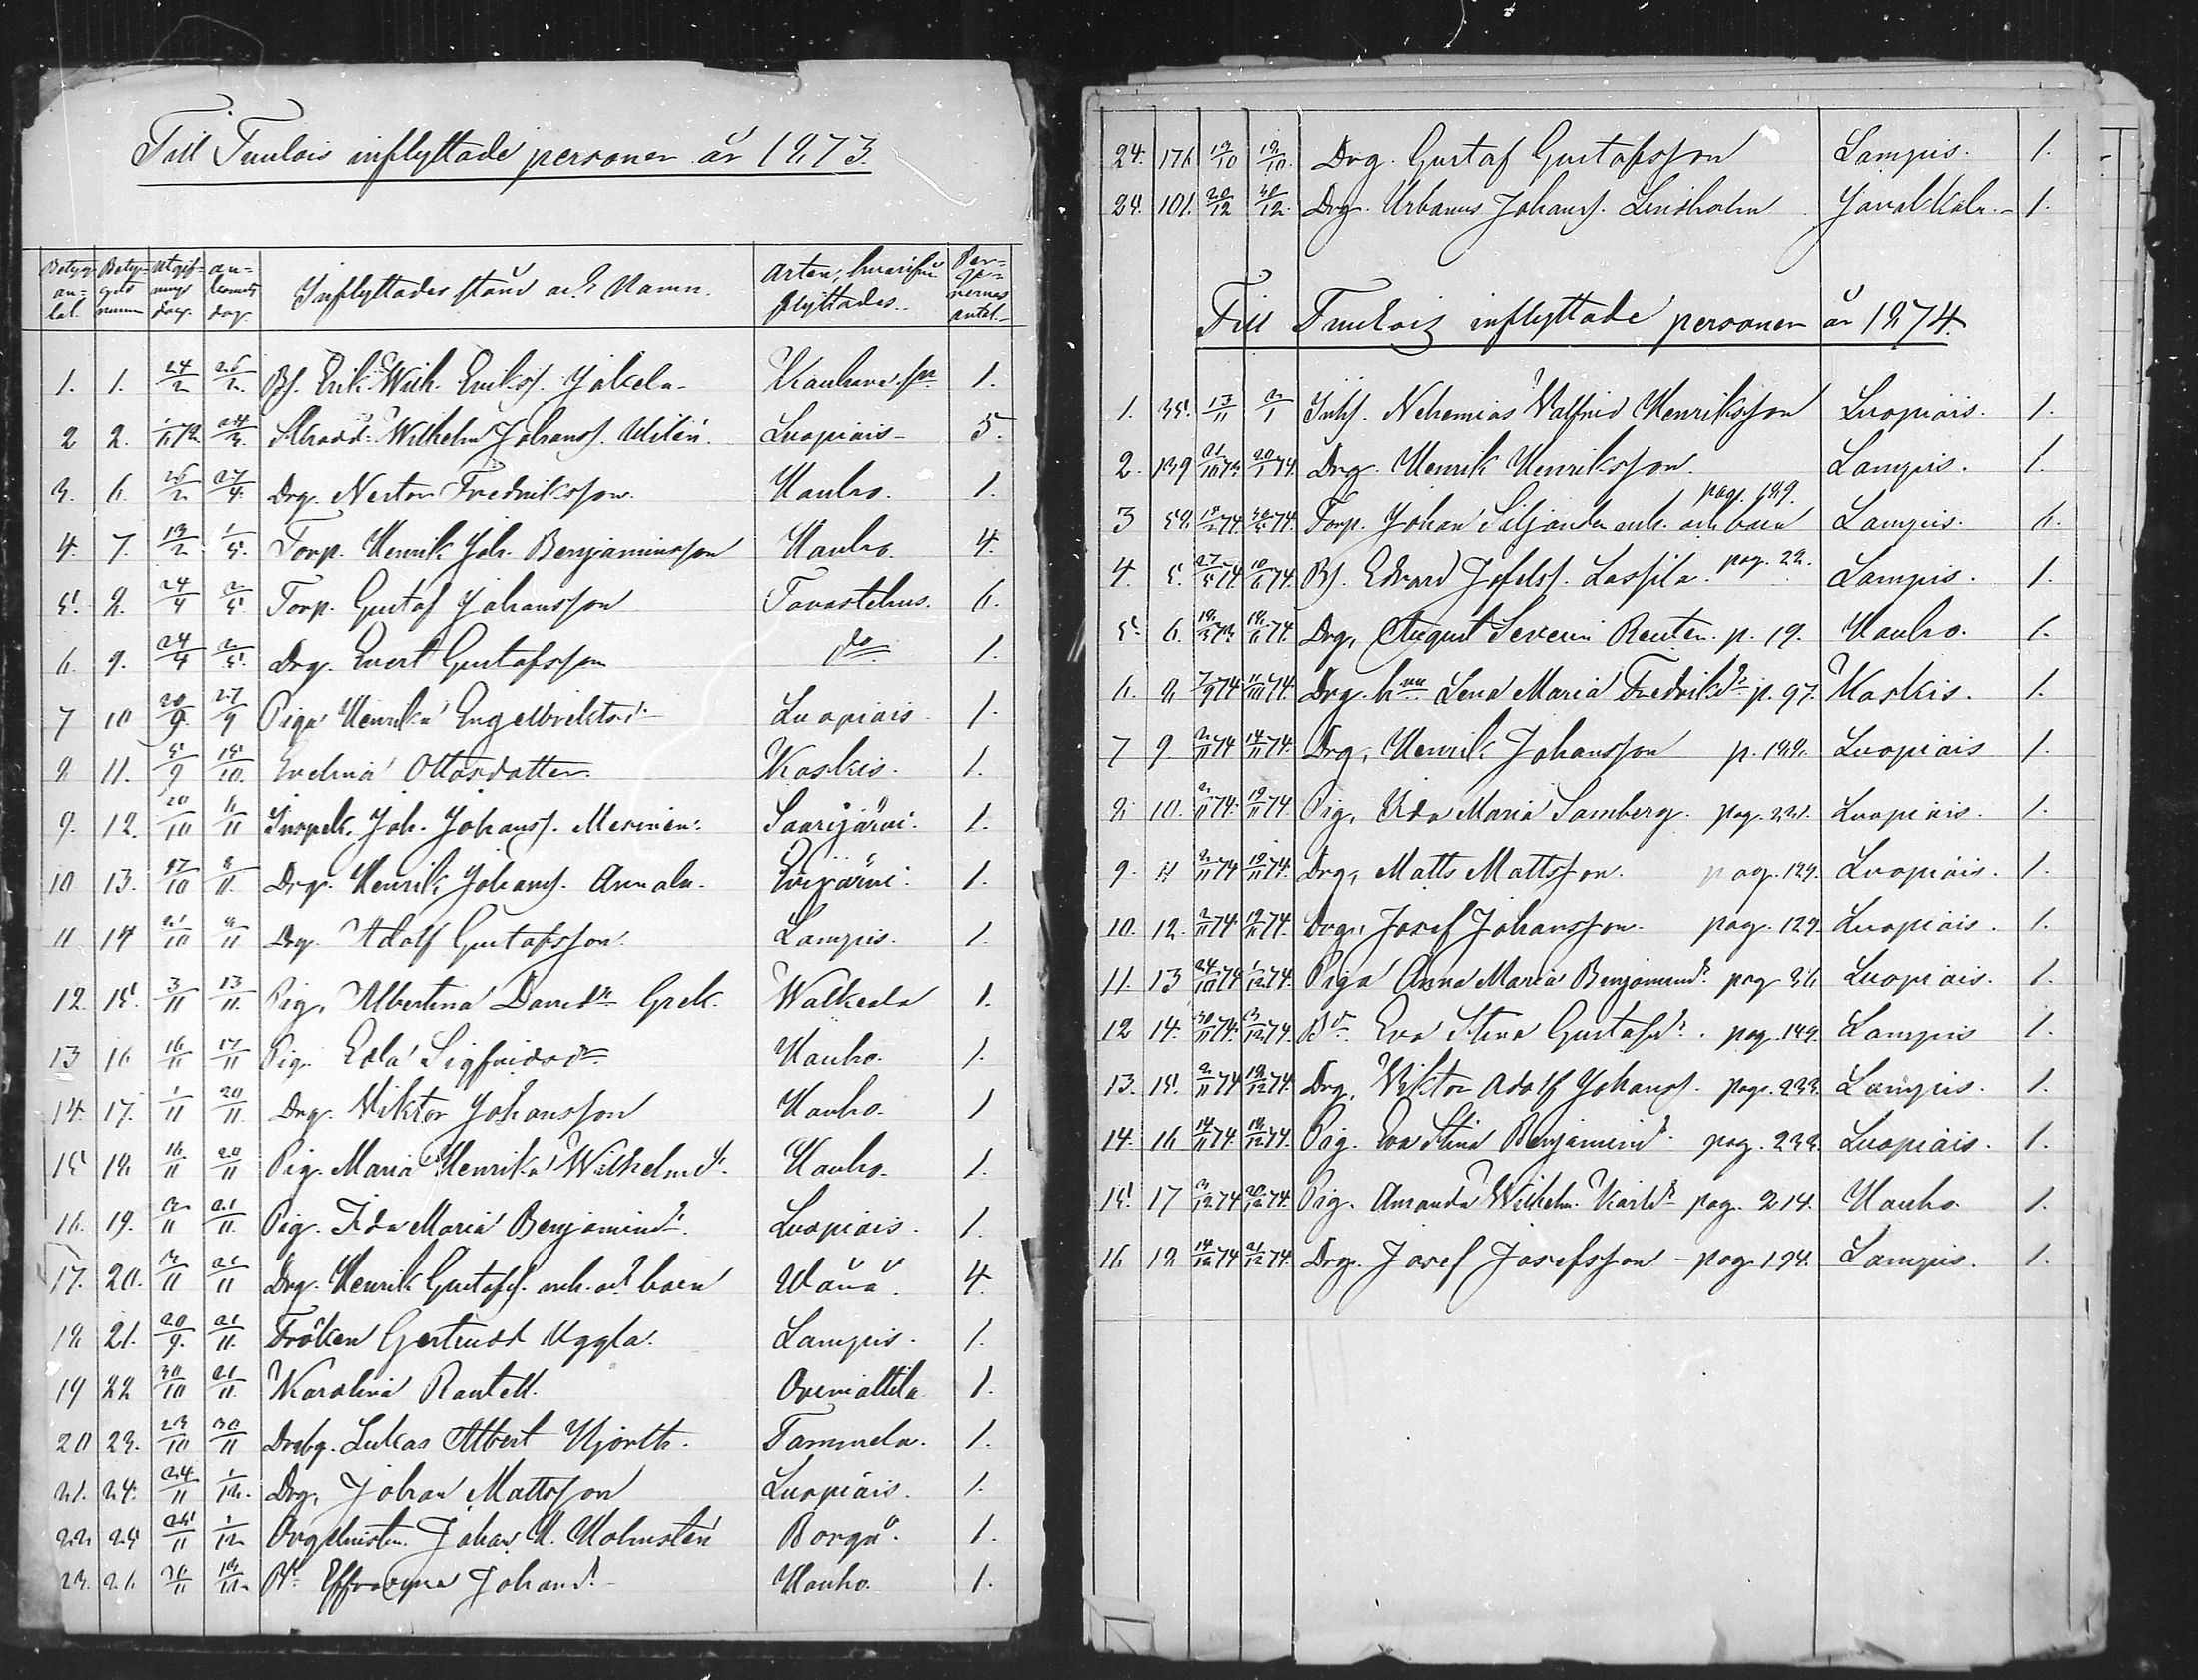 Till Tuulois inflyttade personer år 1873.
Betyg. an- tal. Betyg- gets numm Utgif- nings dag. an- komst dag. Inflyttades stånd och Namn. Orten, hvarifrån flyttades. Per- soo- nernas antal.
1. 1. 24/2 26/2. Bs. Erik Wilh. Eriks. Jäkelä. 1.
2 2. 24/3. Skrädd. Wilhelm Johanss. Luopiais 5.
3. 6. 26/2 27/4. Drg. Nestor Fredriksson. Hauho. 1.
4. 7. 13/2 1/5. Torp. Henrik Joh. Benjaminsson Hauho. 4.
5. 8. 24/4 2/5. Torp. Gustaf Johansson Tavastehus. 6.
6. 9. 24/4 2/5. Drg. Evert Gustafsson do 1.
7 10 20/9. 27/9 Piga Henrika Engelbrektsdr Luopiais. 1.
8 11. 5/9 15/10. Evelina Ottosdotter. Koskis. 1.
9. 12. 20/10 6/11 Inspek. Joh. Johanss. Merinen. Saarijärvi. 1.
10 13. 27/10 8/11. Drg. Henrik Johanss. Annala. Evijärvi. 1.
11 14 21/10 9/11 Drg. Adolf Gustafsson. Lampis. 1.
12. 15. 3/11 13/11. Pig. Albertina Davidsdr Grek. Walkeala 1.
13 16 16/11 17/11 Pig. Edla Sigfridsdr Hauho. 1.
14. 17. 1/11 20/11. Drg. Viktor Johansson Hauho. 1
15 18 16/11 20/11 Pig. Maria Henrika Wilhelmsdr. Hauho. 1.
16. 19. 2/11 21/11. Pig. Ida Maria Benjaminsdr. Luopiais. 1.
17. 20. 3/11 21/11 Drg. Henrik Gustafss. enk. och barn Wånå. 4.
18 21. 20/9. 21/11. Fröken Gertrud Uggla. Lampis. 1.
19 22 30/10 21/11. Karolina Rantell. Orimattila 1.
20 23. 23/10 30/11 Drbg. Lukas Albert Hjorth. Tammela. 1.
21. 24. 24/11 1/12. Drg. Johan Mattsson Luopiais. 1.
22 24 25/11 1/12 Orgelnistn. Johan H. Holmstén Borgå. 1.
23. 26. Pr Effrosyna Johansdr. Hauho 1.
24. 176 19/10 19/10. Drg. Gustaf Gustafsson Lampis. 1.
24. 101. 20/12 30/12. Drg. Urbanus Johanss. Lindholm 1.
Till Tuulois inflyttade personer år 1874.
1. 35. 13/11 2/1 Inhs. Nehemias Valfrid Henriksson Luopiais. 1.
2. 139 21/10 73. 20/1 74. Drg. Henrik Henriksson. Lampis. 1.
pag. 189.
3 58. Torp. Johan Siljander enk. och barn Lampis. 6.
4. 5. 27/5 74 10/6 74. Bs. Edvard Josefss. Lassila. pag. 22. Lampis. 1.
5. 6. Drg. August Severin Reuter. p. 19. Hauho. 1.
6. 8 7/9 74 11/10 74. Drg. hnu Lena Maria Fredriksdr p. 97. Koskis. 1.
7 9. 2/11 74 14/11 74. Drg. Henrik Johansson p. 188. Luopiais 1.
8 10. 2/11 74. 19/11 74. Pig. Ida Maria Samberg. pag. 231. Luopiais. 1.
9. 11 2/11 74 19/11 74. Drg. Matts Mattsson. pag. 129. Luopiais. 1.
10. 12. 2/11 74. 19/11 74. Drg. Josef Johansson. pag. 129. Luopiais. 1.
11. 13 24/10 74 1/12 74. Piga Anna Maria Benjaminsdr. pag 36 Luopiais. 1.
12 14. 30/11 74. 3/12 74. Bdr Eva Stina Gustafsdr. pag. 149. Lampis 1.
13. 15. 2/11 74 19/12 74. Drg. Viktor Adolf Johanss. pag. 233. Lampis. 1.
14. 16 14/11 74. 19/12 74. Pig. Eva Stina Benjaminsdr. pag. 233. Luopiais. 1.
15. 17 3/12 74 20/12 74. Pig. Amanda Wilhelm. Karlsdr pag. 214. Hauho 1.
16 18 14/12 74 21/12 74. Drg. Josef Josefsson - pag. 194. Lampis. 1.